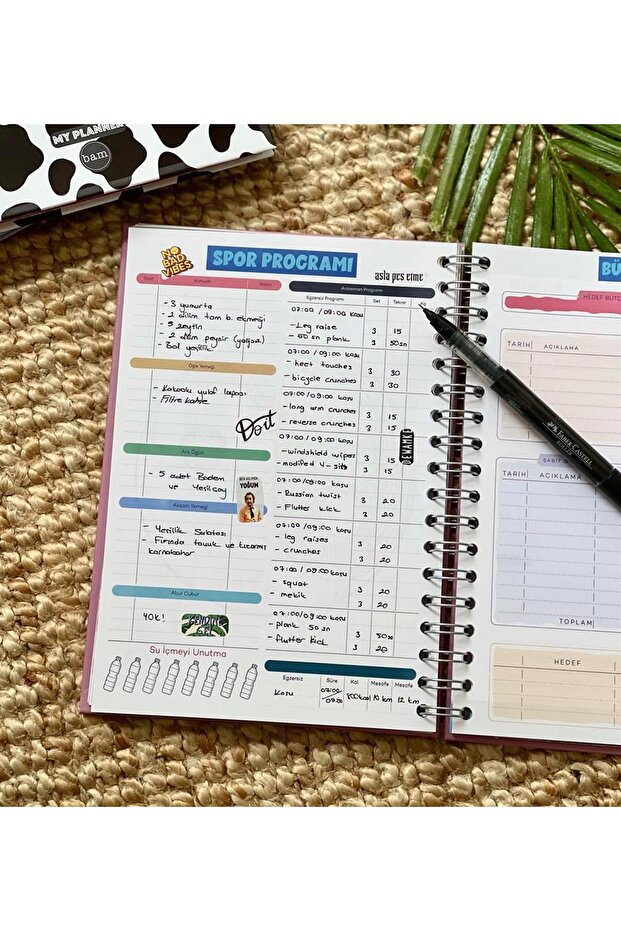 MY PLANNER
bam
NO BAD VIBES
SPOR PROGRAMI
asla pes etme
Saat Kahvaltı Kalori
- 3 yumurta
- 2 dilim tam b. ekmeği
- 5 zeytin
- 2 dilim peynir (yağsız)
- Bol yeşillik
Öğle Yemeği
- Kakaolu yulaf lapası
- Filtre kahve
Dört
Ara Öğün
- 5 adet Badem
ve Yeşilçay
BEN ASLINDA YOĞUM
Akşam Yemeği
- Yeşillik Salatası
- Fırında tavuk ve
karnabahar
Abur Cubur
YOK!
KENDİNE GEL
Su İçmeyi Unutma
Antrenman Programı
Egzersiz Programı Set Tekrar
07:00 / 09:00 kosu
- Leg raise 3 15
- 50 sn plank 3 50sn
07:00 / 09:00 kosu
- heet touches 3 30
- bicycle crunches 3 30
07:00 / 09:00 kosu
- long arm crunches 3 15
- reverse crunches 3 15
DEWAMKE
07:00 / 09:00 kosu
- windshield wipes 3 15
- modified v-sits 3 15
07:00 / 09:00 kosu
- Russian twist 3 20
- Flutter kick 3 20
07:00 / 09:00 kosu
- leg raises 3 20
- crunches 3 20
07:00 / 09:00 kosu
- squat 3 20
- mekik 3 20
07:00 / 09:00 kosu
- plank 50 sn 3 50sn
- flutter kick 3 20
Egzersiz Süre Kal. Mesafe Mesafe
Kosu 07:00 / 09:00 800kcal 10 km 12 km
BÜ
HEDEF BÜTÇ
TARİH AÇIKLAMA
SABİT G
TARİH AÇIKLAMA
TOPLAM
HEDEF
FABER-CASTELL